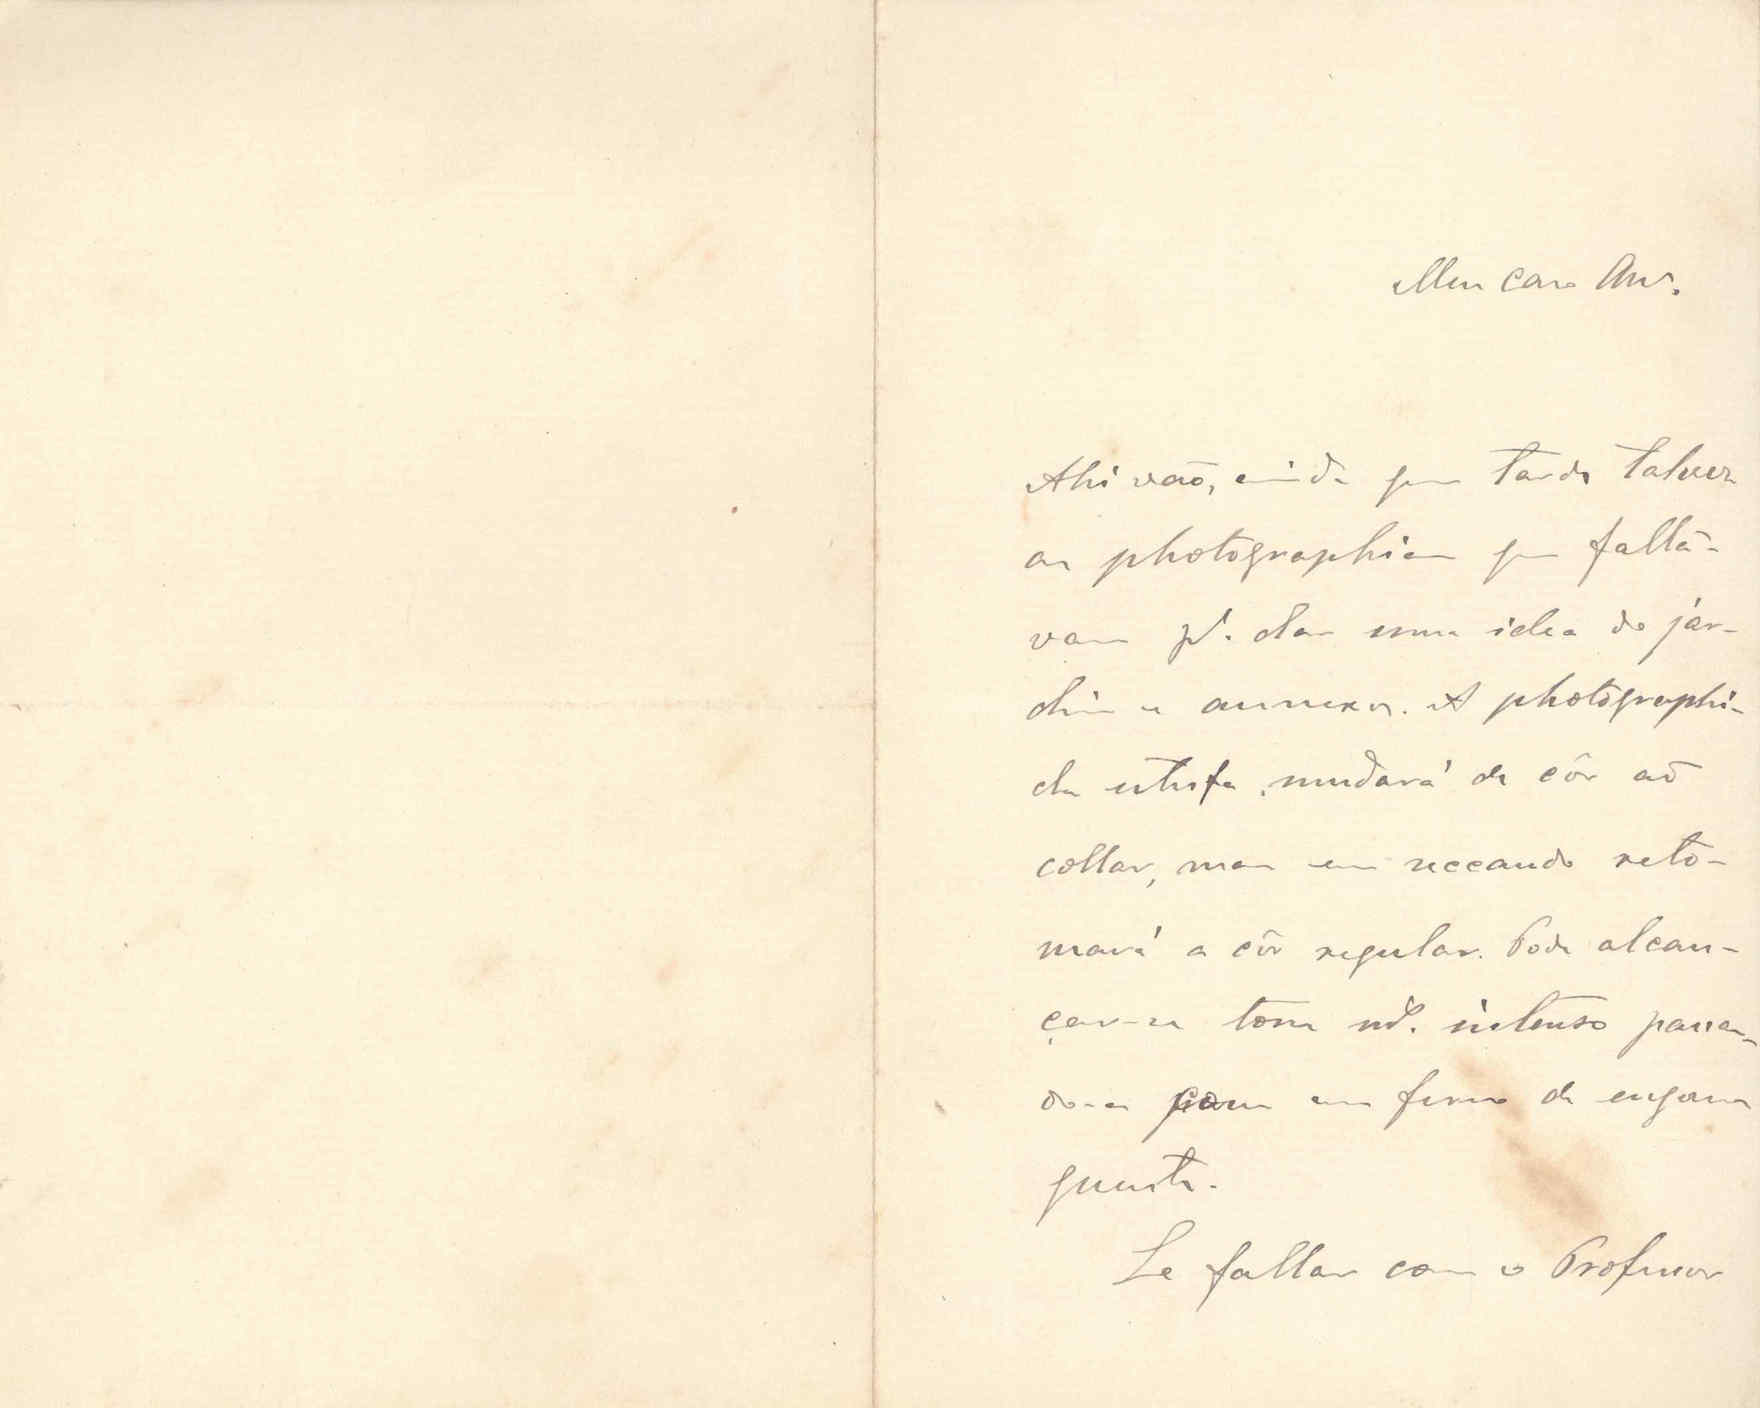 Meu caro Am.
Ahi vaõ, ainda que tarde talvez
as photographias que falta-
vam p.ª dar uma idea do jar-
dim e annexos. A photographi-
da estufa, mudará de côr aõ
collar, mas em seccando reto-
mará a côr regular. Pode alcan-
çar-se tom m.to intenso passan-
do-a com um ferro de engomar
quente.
Se fallar com o Professor